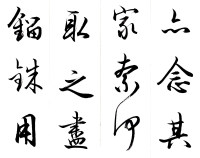 亦念其
家奈何
取之盡
錙銖用